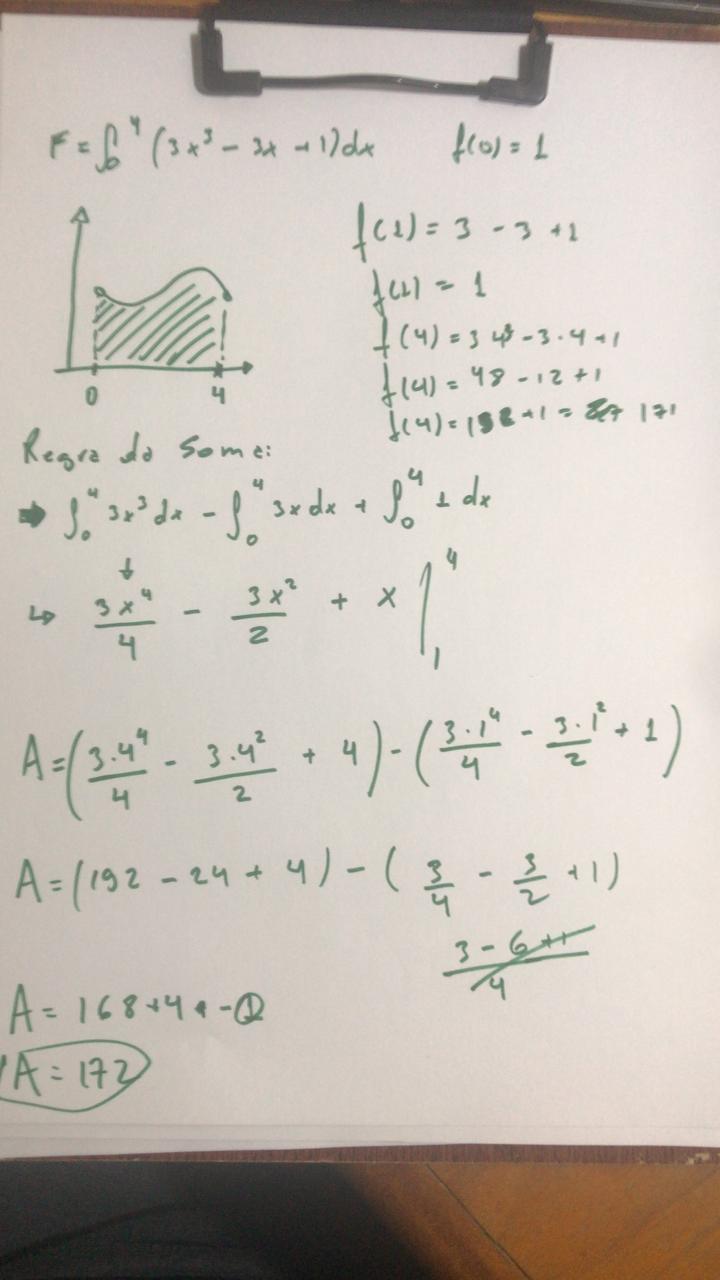 F = ∫₀⁴ (3x³ - 3x + 1)dx f(0) = 1
f(1) = 3 - 3 + 1
f(1) = 1
f(4) = 3 4³ - 3·4 + 1
f(4) = 48 - 12 + 1
0 4
Regra da Soma:
➡ ∫₀⁴ 3x³ dx - ∫₀⁴ 3x dx + ∫₀⁴ 1 dx
↳ 3x⁴/4 - 3x²/2 + x |₁⁴
A = (3·4⁴/4 - 3·4²/2 + 4) - (3·1⁴/4 - 3·1²/2 + 1)
A = (192 - 24 + 4) - (3/4 - 3/2 + 1)
A = 168 + 4
A = 172